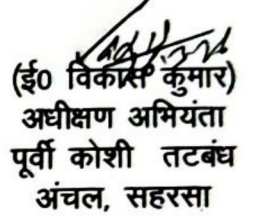 (ई0 विकास कुमार)
अधीक्षण अभियंता
पूर्वी कोशी तटबंध
अंचल, सहरसा